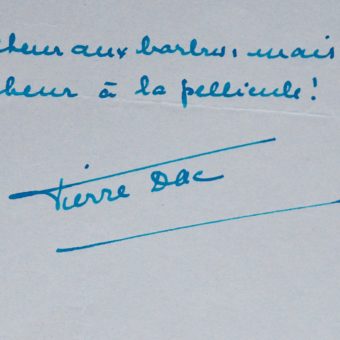 cheur aux barbus, mais
heur à la pellicule!
Pierre Dac